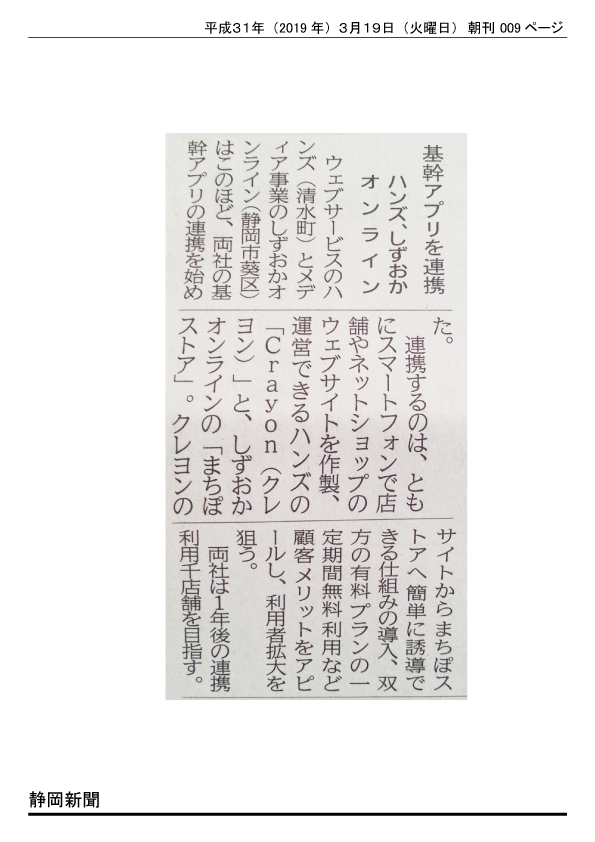 平成３１年（2019 年）３月１９日（火曜日） 朝刊 009 ページ
基幹アプリを連携
ハンズ、しずおか
オンライン
ウェブサービスのハ
ンズ（清水町）とメデ
ィア事業のしずおかオ
ンライン（静岡市葵区）
はこのほど、両社の基
幹アプリの連携を始め
た。
連携するのは、とも
にスマートフォンで店
舗やネットショップの
ウェブサイトを作製、
運営できるハンズの
「Ｃｒａｙｏｎ（クレ
ヨン）」と、しずおか
オンラインの「まちぽ
ストア」。クレヨンの
サイトからまちぽス
トアへ簡単に誘導で
きる仕組みの導入、双
方の有料プランの一
定期間無料利用など
顧客メリットをアピ
ールし、利用者拡大を
狙う。
両社は１年後の連携
利用千店舗を目指す。
静岡新聞